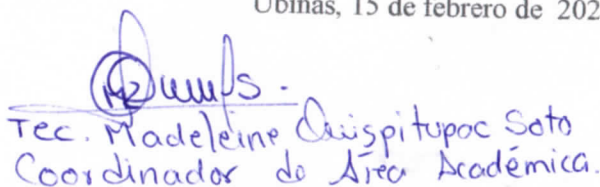 Ubinas, 15 de febrero de 202
Tec. Madeleine Quispitupac Soto
Coordinador de Área Académica.